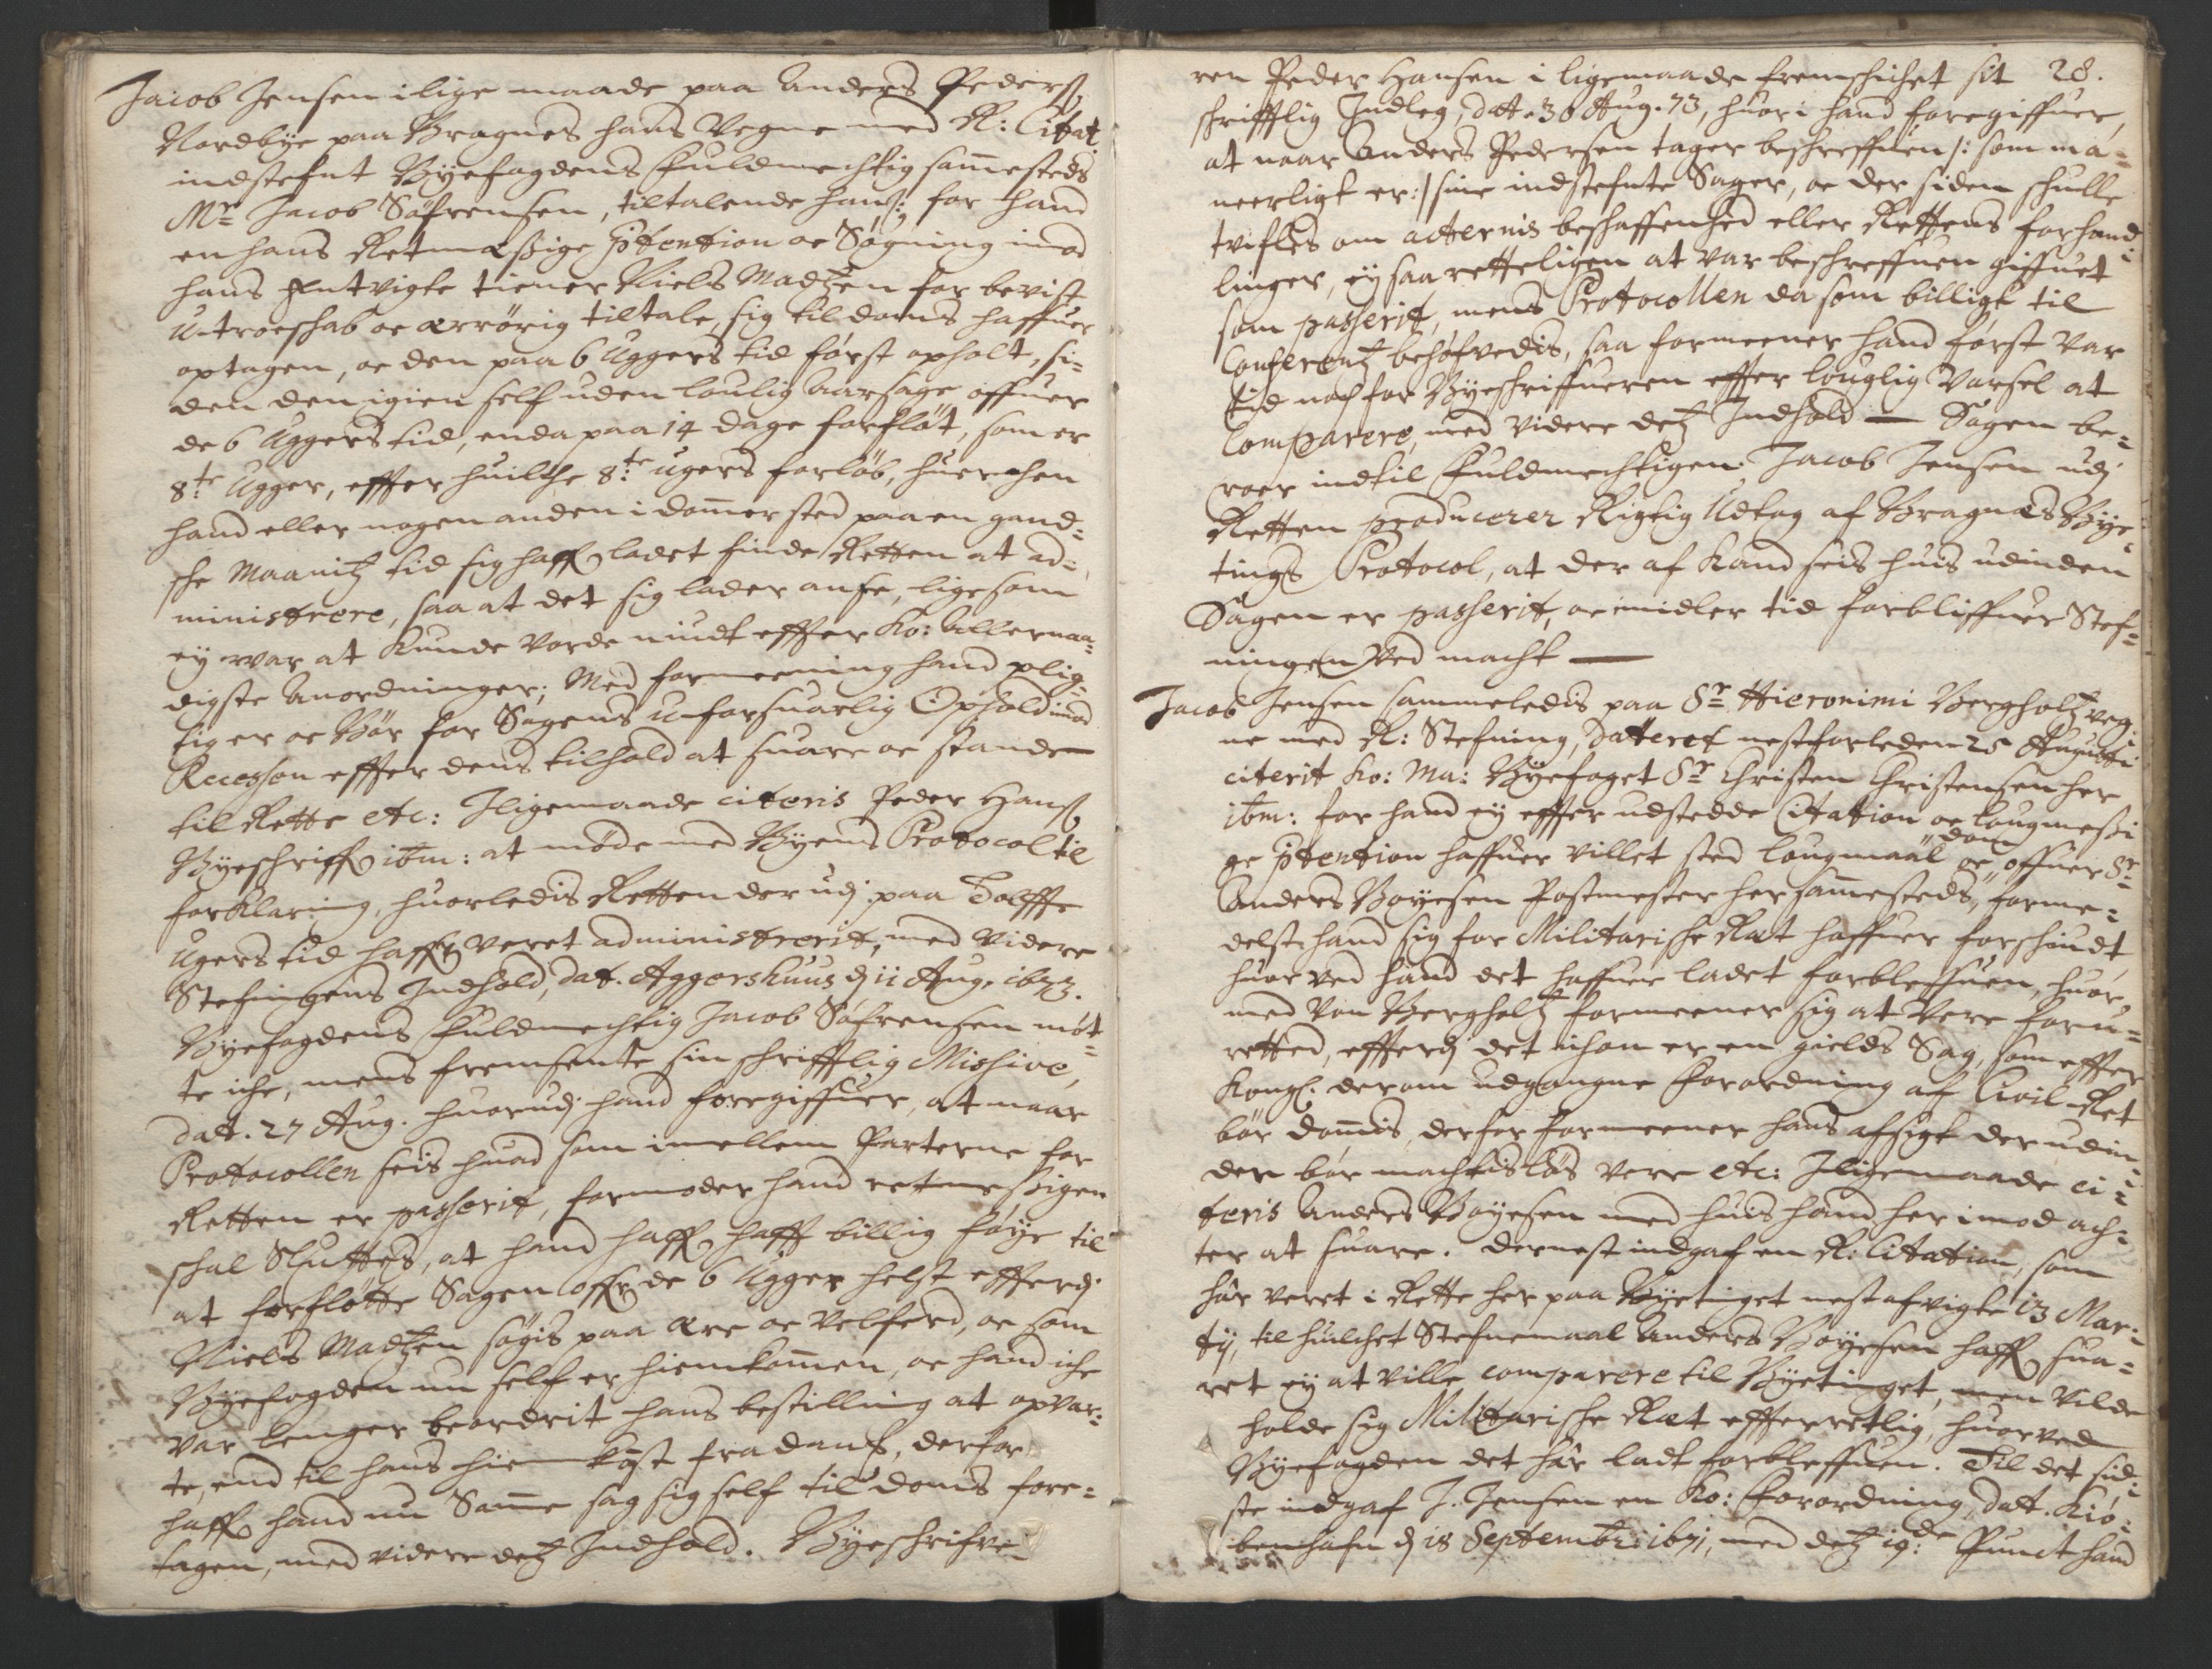 Jacob Jensen i lige maade paa Anders Peders:
Nordbye paa Bragnes hans Vegne med K: Citat.
indstefnt Byefogdens fuldmechtig sammesteds
Mr Jacob Söfrensen, tiltalende hans: for hand
en hans Retmæssige prætention oc Sögning imod
hans Entvigte tiener Niels Madtzen for bevist
u-troeskab oc ærrörig tiltale, sig til doms haffuer
optagen, oc den paa 6 Uggers tid först opholt, si-
den den igien self uden loulig Aarsage offuer
de 6 Uggers tid, enda paa 14 dage forflöt, som er
8te Ugger, effter huilche 8te ugers forlöb, huerchen
hand eller nogen anden i dommersted paa en gand-
sche Maanitz tid sig haffr ladet finde Retten at ad-
ministrere, saa at det sig lader anse, ligesom
ey war at kunde vorde niudt effter Ko: Allernaa-
digste Anordninger; Med formeening hand plig-
tig er oc Bör for Sagens u-forsuarlig Ophold imod
Recessen effter dens tilhold at suare oc stande
til Rette etc: Jligemaade citeris Peder Hanss:
Byeschriffr ibm: at möde med Byens Protocol til
forklaring, huorledis Retten der udj paa Tolffte
Ugers tid haffr veret administrerit, med videre
Stefningens Indhold, dat. Aggershuus d 11 Aug. 1673.
Byefogdens fuldmechtig Jacob Söfrensen möt-
te iche, mens fremsente sin schrifftlig Missive,
dat. 27 Aug. huorudj hand foregiffuer, at naar
Protocollen seis huad som imellem Parterne for
Retten er passerit, formoder hand retmessigen
schal Sluttes, at hand haffr hafft billig föye til
at forflötte Sagen offr de 6 Ugger helst efftersj
Niels Madtzen sögis paa ære oc velferd, oc som
Byefogden nu self er hiemkommen, oc hand iche
var lenger beordrit hans bestilling at opvar-
te, end til hans hiemkomst fra danm, derfor
haffr hand nu Samme sag sig self til doms fore-
tagen, med videre detz Indhold. Byeschrifve-
ren Peder Hansen i ligemaade fremschichet sit 28.
schrifftlig Indleg, dat. 30 Aug. 73, huori hand foregiffuer,
at naar Anders Pedersen tager beschreffuen /: som ma-
neerligt er:/ sine indstefnte Sager, oc der siden schulle
tvifles om acternis beschaffenhed eller Rettens forhand-
linger, ey saa retteligen at var beschreffuen giffuet
som passerit, mens Protocollen da som billigt til
Conferentz behöfvedis, saa formeener hand först var
tid nok for Byeschriffueren effter louglig Varsel at
Comparere, med videre detz Indhold — Sagen be-
roer indtil fuldmechtigen Jacob Jensen udj
Retten producerer Rigtig Udtog af Bragnæs Bye-
tings Protocol, at der af kand seis huis udinden
Sagen er passerit, oc imidler tid forbliffuer Stef-
ningen ved macht —
Jacob Jensen sammeledis paa Sr Hieronimi Bergholtz veg-
ne med K: Stefning, Dateret nestforleden 25 Augusti
citerit Ko: Ma: Byefoget Sr Christen Christensen her
ibm: for hand ey effter udstedde Citation oc lougmessi
ge prætention haffuer villet sted lougmaal oc dom offuer Sr
Anders Boyesen Postmester her sammesteds, forme-
delst hand sig for Militarische Ræt haffuer forschiudt
huor ved hand det haffuer ladet forbleffuen, huor-
med von Bergholtz formeener sig at vere foru-
retted, efftersj det ichon er en gields Sag, som effter
Kongl: derom udgangne Forordning af Civil-Ret
bör dömmis, derfor formeener hans afsigt derudin-
den bör machtislös vere etc: Jligemaade ci-
teris Anders Boyesen med huis hand her imod ach-
ter at suare. dernest indgaf en K: Citation, som
hâr veret i Rette her paa Byetinget nest afvigte 13 Mar-
tij, til huilchet Stefnemaal Anders Boyesen haffr sua-
ret ey at ville comparere til Byetinget, men vilde
holde sig Militarische Ræt effterretlig, huorved
Byefogden det hâr ladt forbleffuen. Til det sid-
ste indgaf J. Jensen en Ko: Forordning, dat. Kiö-
benhafn d 18 Septembr: 1671, med detz 19de Punct hand